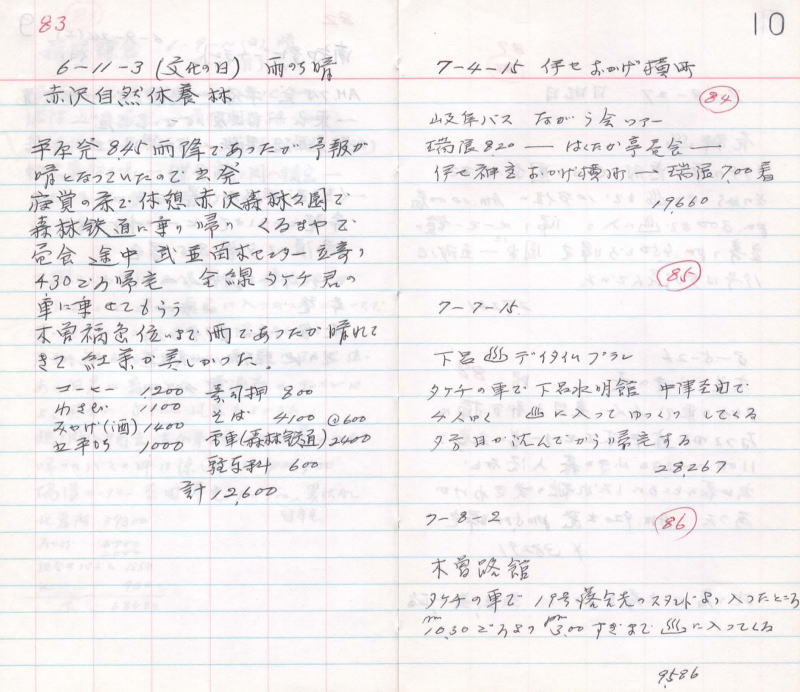 83
6-11-3 (文化の日) 雨のち晴
赤沢自然休養林
発 8.45 雨降であったが予報が
晴となっていたので出発
寝覚の床で休憩 赤沢森林公園で
森林鉄道に乗り帰り くるまやで
昼食 途中 センター立寄り
4.30ごろ帰宅 全線タケチ君の
車に乗せてもらう
木曽福島位いまで雨であったが晴れて
きて紅葉が美しかった。
コーヒー 1200 寿司押 800
わさび 1100 そば 4100 @600
みやげ(酒) 1400 電車(森林鉄道) 2400
五平もち 1000
駐車料 600
計 12,600
10
7-4-15 伊セおかげ横町
84
岐阜バス ながら会ツアー
瑞浪 8.20 ― はくたか亭昼食 ―
伊セ神宮おかげ横町 ― 瑞浪 7,00着
19,660
85
7-7-15
下呂♨デイタイムプラン
タケチの車で下呂水明館 中津 で
4人ゆく ♨に入ってゆっくりしてくる
夕方日が沈んでから帰宅する
28,267
7-8-2
86
木曽路館
タケチの車で 19号落合先のスタンドより入ったところ
10,30ごろより 3,00すぎまで♨に入ってくる
9,586